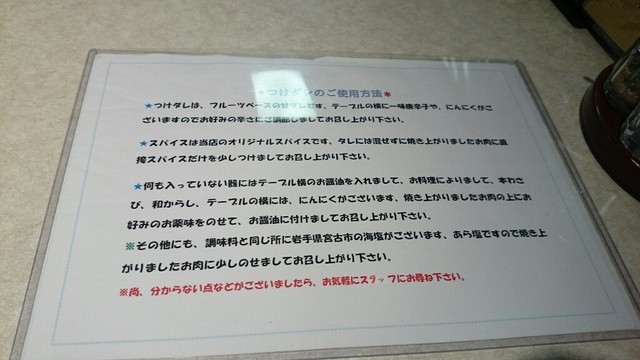 ＊つけダレのご使用方法＊
★つけタレは、フルーツベースの甘ダレです、テーブルの横に一味唐辛子や、にんにくがご
ざいますのでお好みの辛さにご調節しましてお召し上がり下さい。
★スパイスは当店のオリジナルスパイスです、タレには混ぜずに焼き上がりましたお肉に直
接スパイスだけを少しつけましてお召し上がり下さい。
★何も入っていない器にはテーブル横のお醤油を入れまして、お料理によりまして、本わさ
び、和からし、テーブルの横には、にんにくがございます、焼き上がりましたお肉の上にお
好みのお薬味をのせて、お醤油に付けましてお召し上がり下さい。
※その他にも、調味料と同じ所に岩手県宮古市の海塩がございます、あら塩ですので焼き上
がりましたお肉に少しのせましてお召し上がり下さい。
※尚、分からない点などがございましたら、お気軽にスタッフにお尋ね下さい。